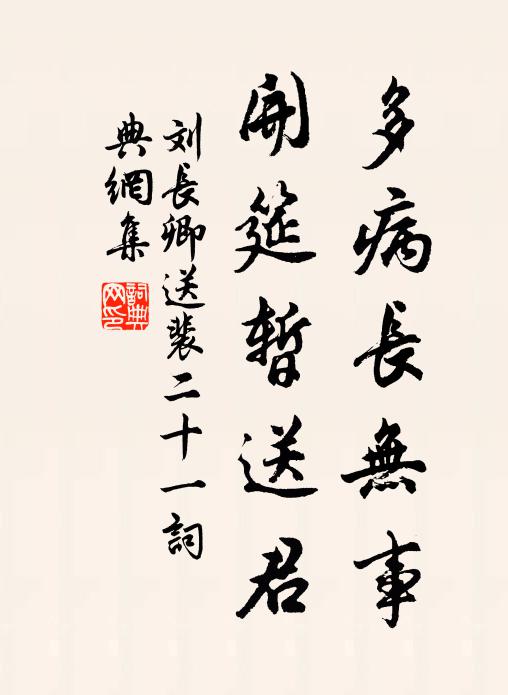 多病長無事
開筵暫送君
刘長卿送裴二十一詞
典網集
詞典
网印